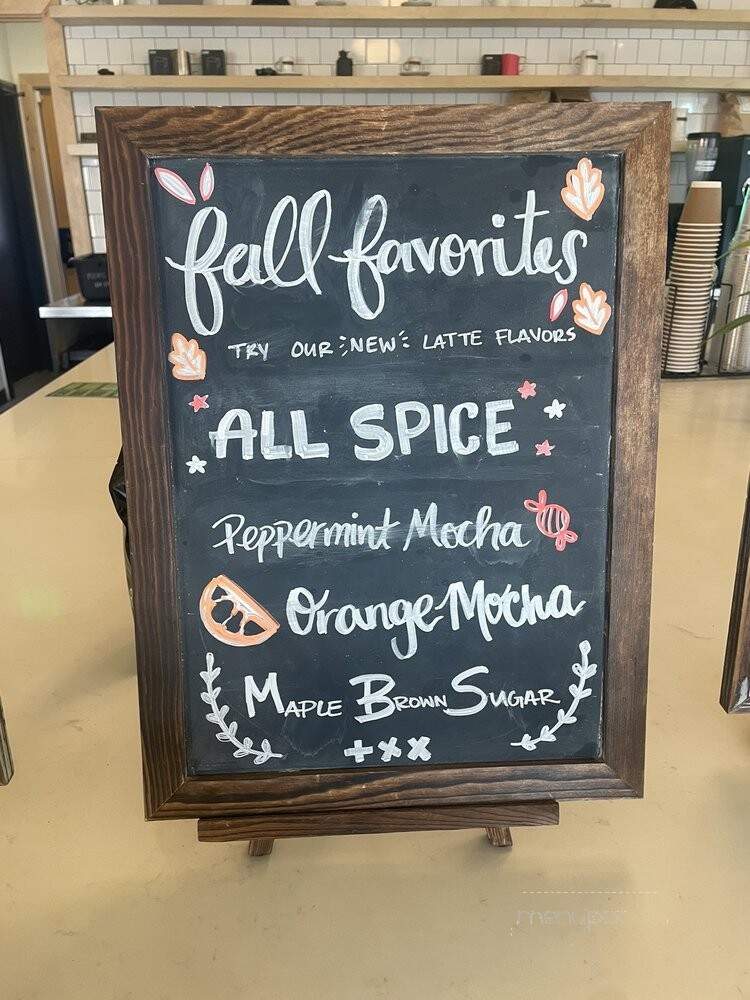 fall favorites
TRY OUR NEW LATTE FLAVORS
ALL SPICE
Peppermint Mocha
Orange Mocha
MAPLE BROWN SUGAR
+××